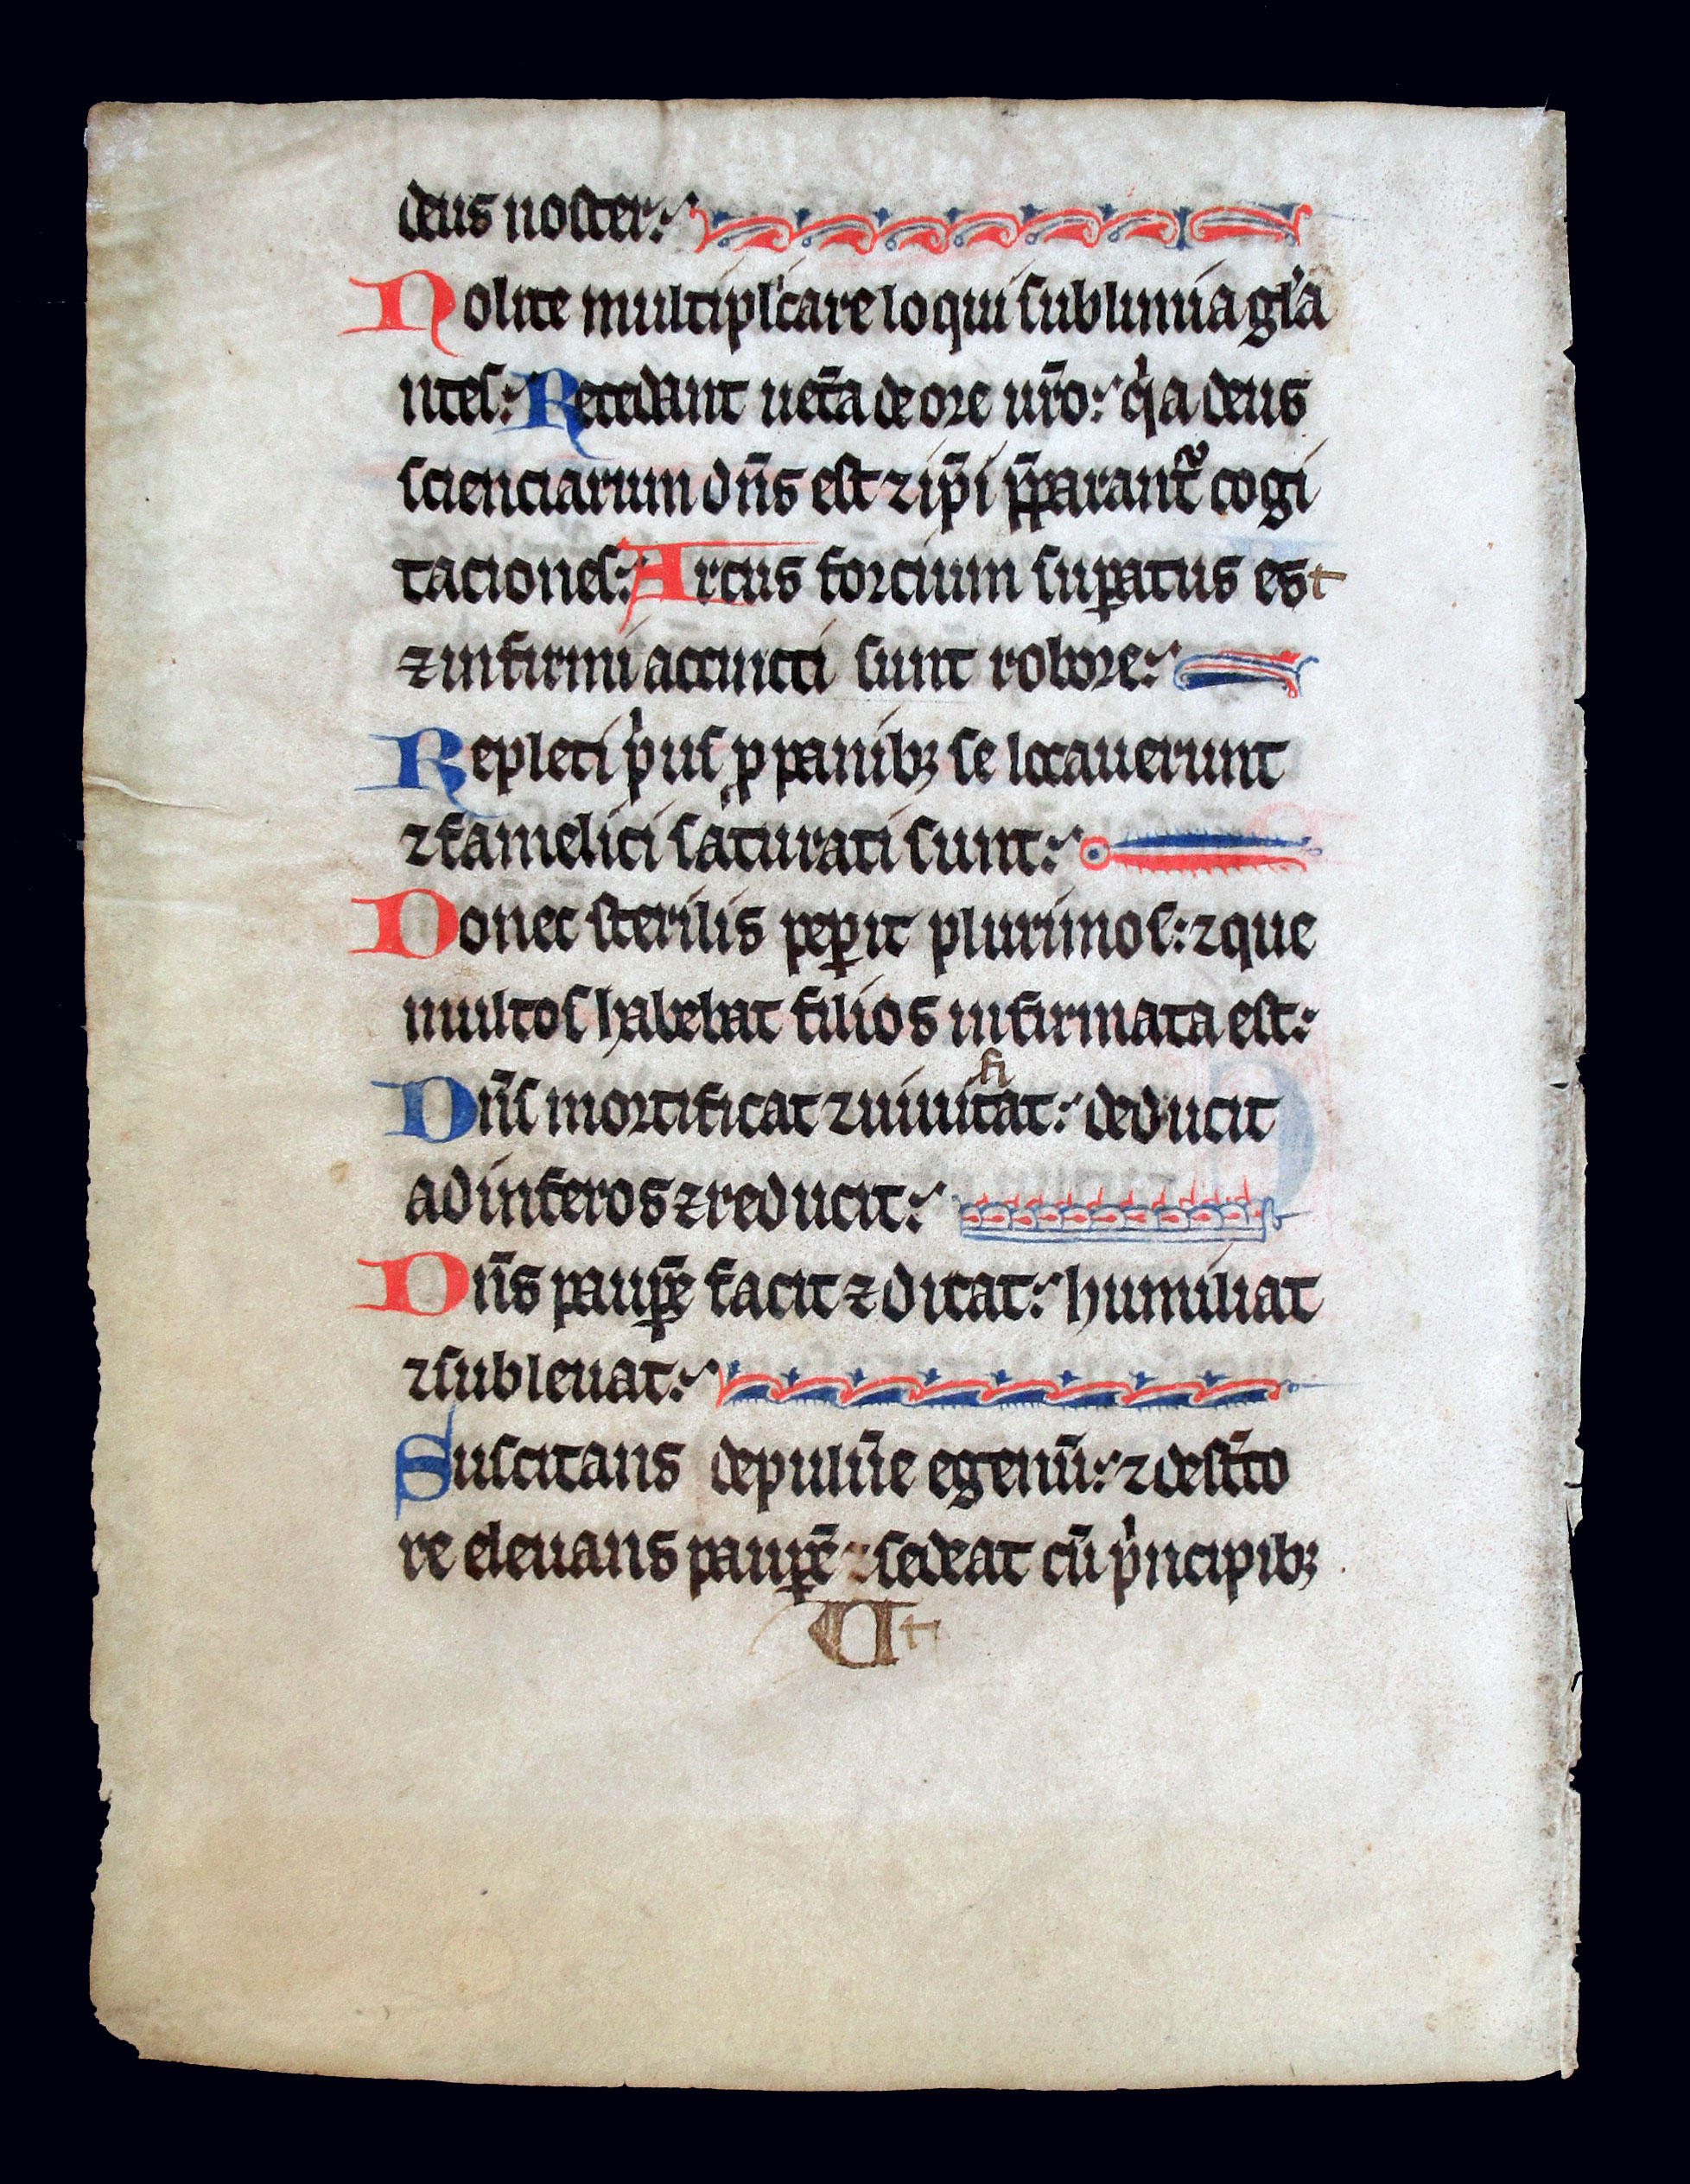 deus noster:
Nolite multipl'care loqui sublimia gl'a
ntes: Recedant uet̄a de ore ur̄o: qͥa deus
scienciarum dn̄s est ⁊ ip̄i p̄parant᷑ cogi
taciones: Arcus forcium suꝑatus est
⁊ infirmi accincti sunt robore:
Repleti pͥus ꝑ panibꝫ se locauerunt
⁊ famelici saturati sunt:
Donec sterilis peꝑit plurimos: ⁊ que
multos habebat filios infirmata est:
Dn̄s mortificat ⁊ uiuifitat: deducit
ad inferos ⁊ reducit:
Dn̄s pauꝑē facit ⁊ ditat: humiliat
⁊ subleuat:
Suscitans de puluē̄e egenū: ⁊ de stērco
re eleuans pauꝑē sedeat cū pͥncipibꝫ